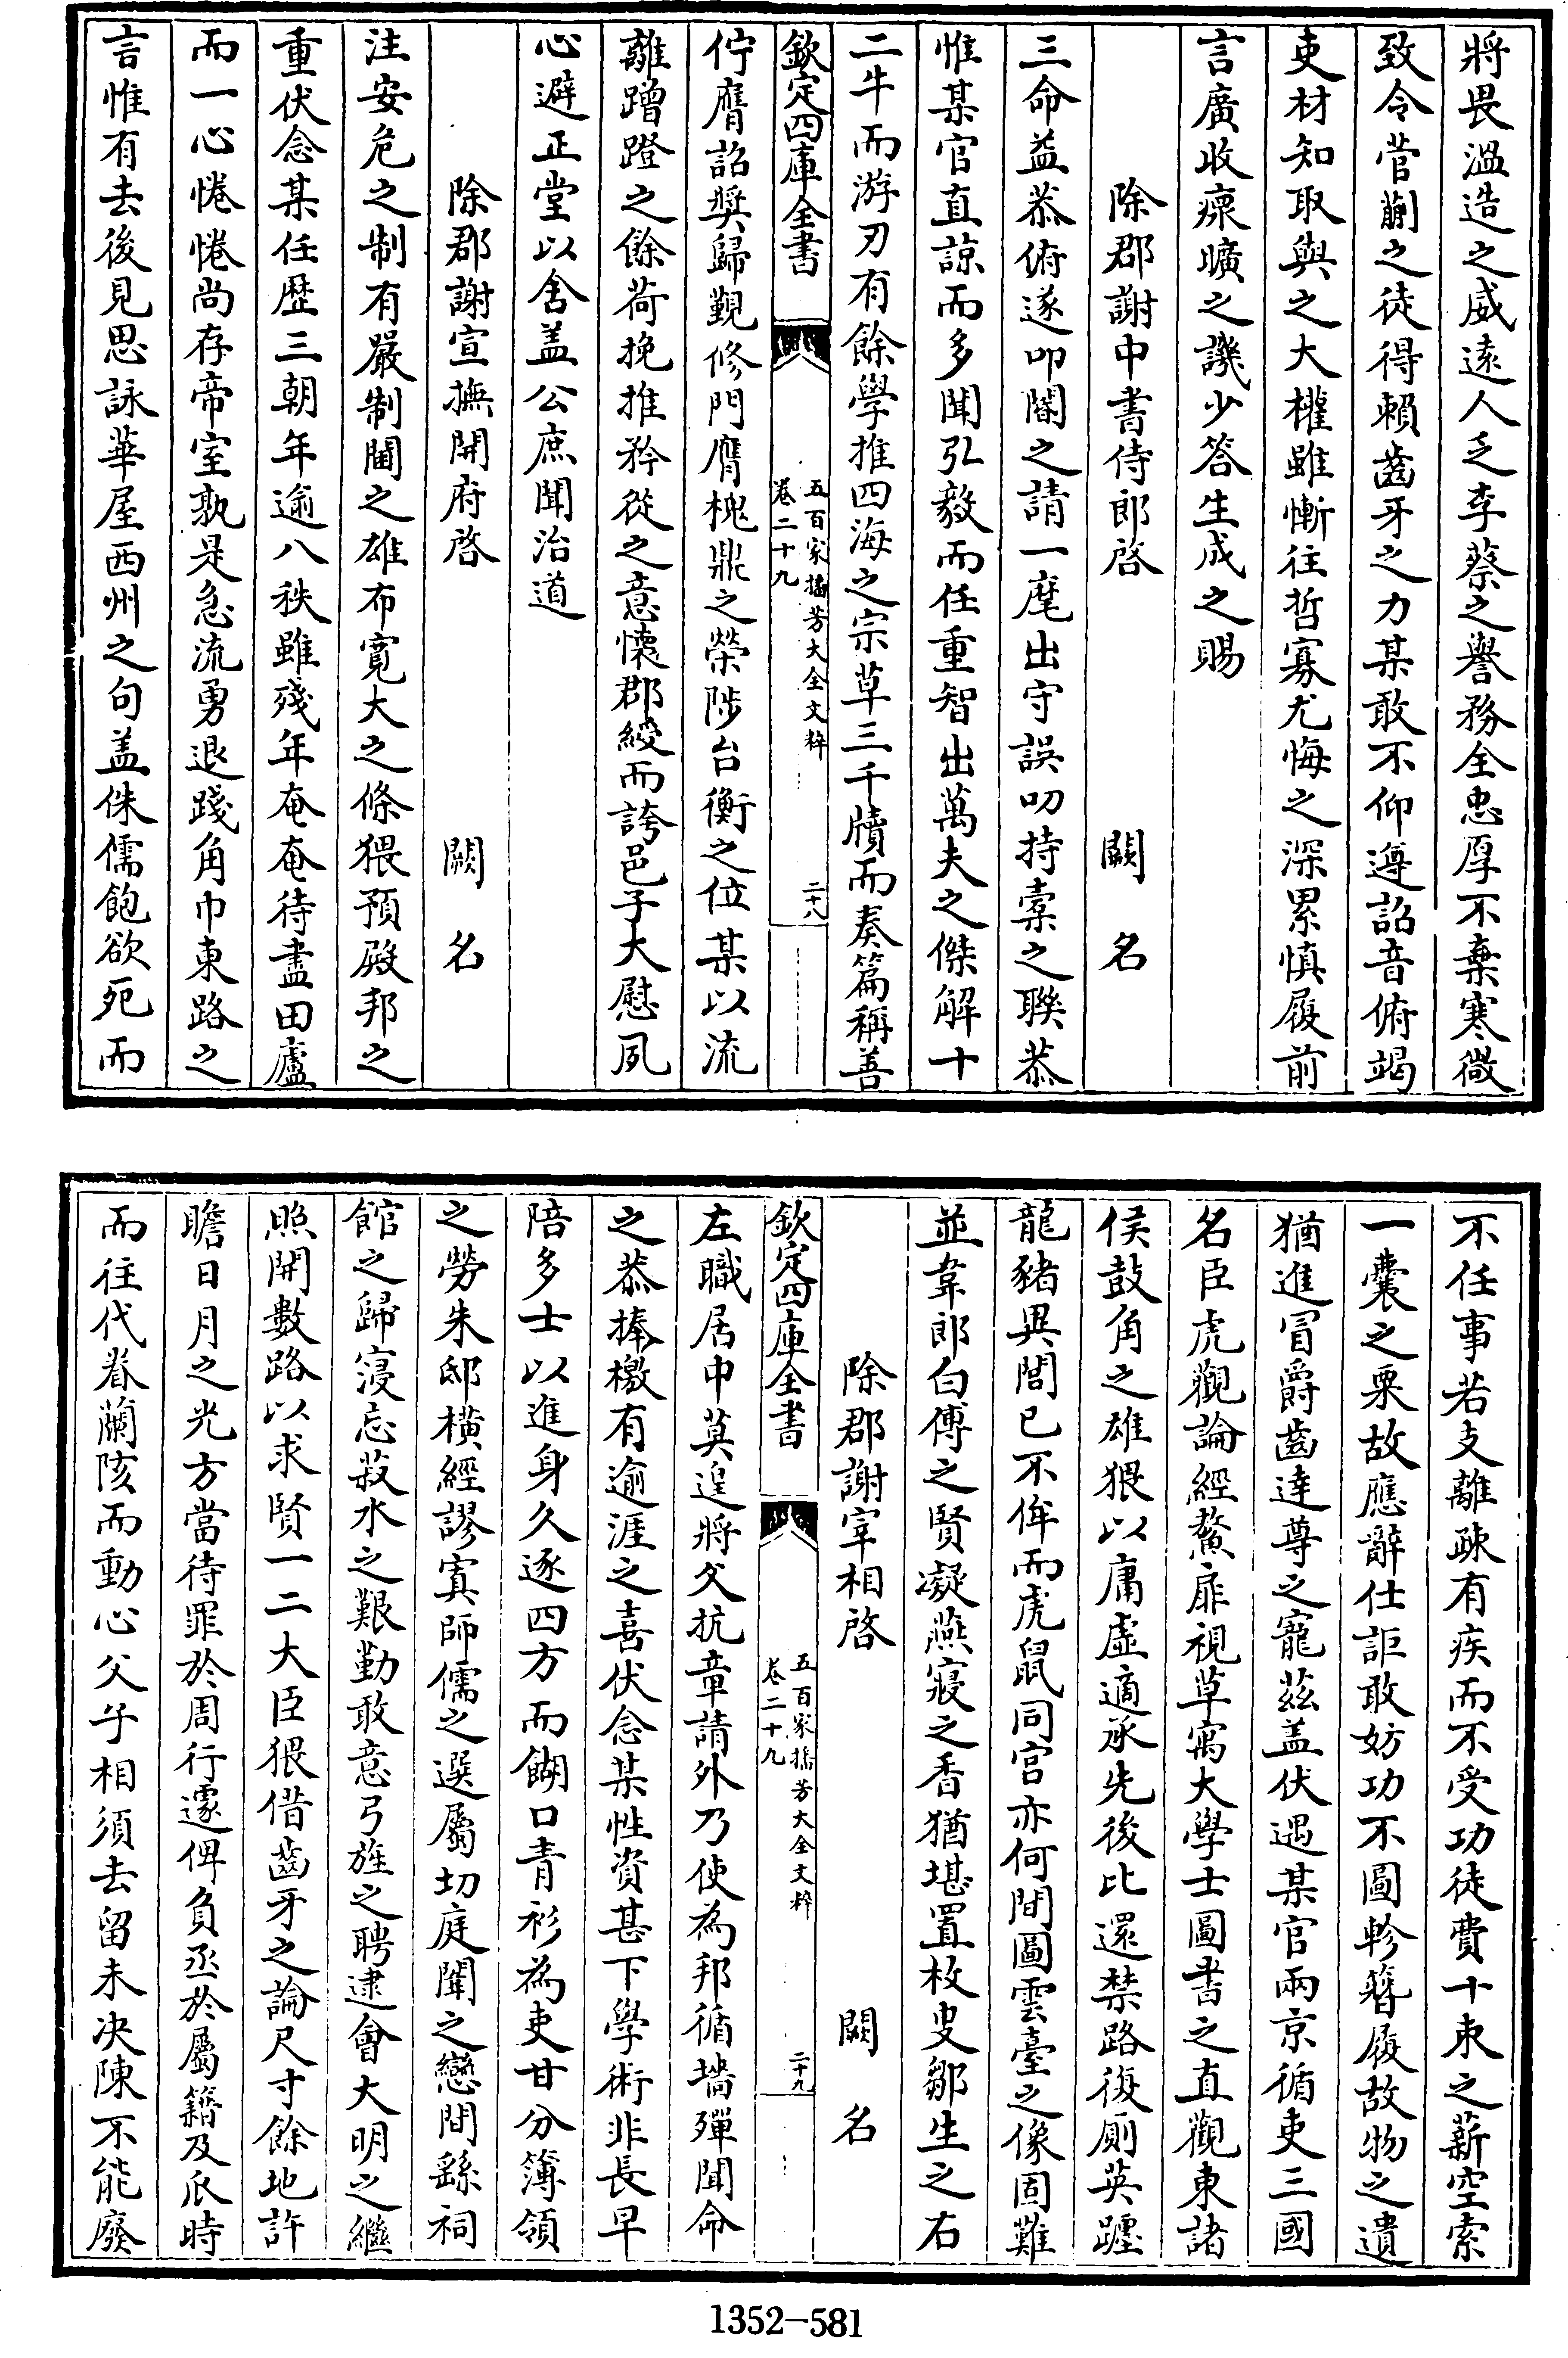 將畏溫造之威遠人乏李蔡之譽務全忠厚不棄寒微
致令菅蒯之徒得賴齒牙之力某敢不仰遵詔音俯竭
吏材知取與之大權雖慚往哲寡尤悔之深累慎履前
言廣收瘝曠之譏少答生成之賜
除郡謝中書侍郎啓 闕名
三命益恭俯遂叩閽之請一麾出守誤叨持橐之聯恭
惟某官直諒而多聞弘毅而任重智出萬夫之傑解十
二牛而游刃有餘學推四海之宗草三千牘而奏篇稱善
欽定四庫全書 五百家播芳大全文粹 卷二十九 二十八
佇膺詔奬歸覲修門膺槐鼎之榮陟台衡之位某以流
離蹭蹬之餘荷挽推矜從之意懷郡綬而誇邑子大慰夙
心避正堂以舍盖公庶聞治道
除郡謝宣撫開府啓 闕名
注安危之制有嚴制閫之雄布寬大之條猥預殿邦之
重伏念某任歷三朝年逾八秩雖殘年奄奄待盡田廬
而一心惓惓尚存帝室孰是急流勇退踐角巾東路之
言惟有去後見思詠華屋西州之句盖侏儒飽欲死而
不任事若支離疎有疾而不受功徒費十束之薪空索
一囊之粟故應辭仕詎敢妨功不圖軫簪履故物之遺
猶進冒爵齒達尊之寵茲盖伏遇某官兩京循吏三國
名臣虎觀論經鰲扉視草寓大學士圖書之直觀東諸
侯鼓角之雄猥以庸虛適承先後比還禁路復厠英躔
龍豬異閭已不侔而虎鼠同宫亦何間圖雲臺之像固難
並韋郎白傅之賢凝燕寢之香猶堪置枚叟鄒生之右
除郡謝宰相啓 闕名
欽定四庫全書 五百家播芳大全文粹 卷二十九 二十九
左職居中莫遑將父抗章請外乃使為邦循墻殫聞命
之恭捧檄有逾涯之喜伏念某性資甚下學術非長早
陪多士以進身久逐四方而餬口青衫為吏甘分簿領
之勞朱邸橫經謬寘師儒之選屬切庭闈之戀間繇祠
館之歸寖忘菽水之艱勤敢意弓旌之聘逮會大明之繼
照開數路以求賢一二大臣猥借齒牙之論尺寸餘地許
瞻日月之光方當待罪於周行遽俾負丞於屬籍及瓜時
而往代眷蘭陔而動心父子相須去留未决陳不能廢
1352-581